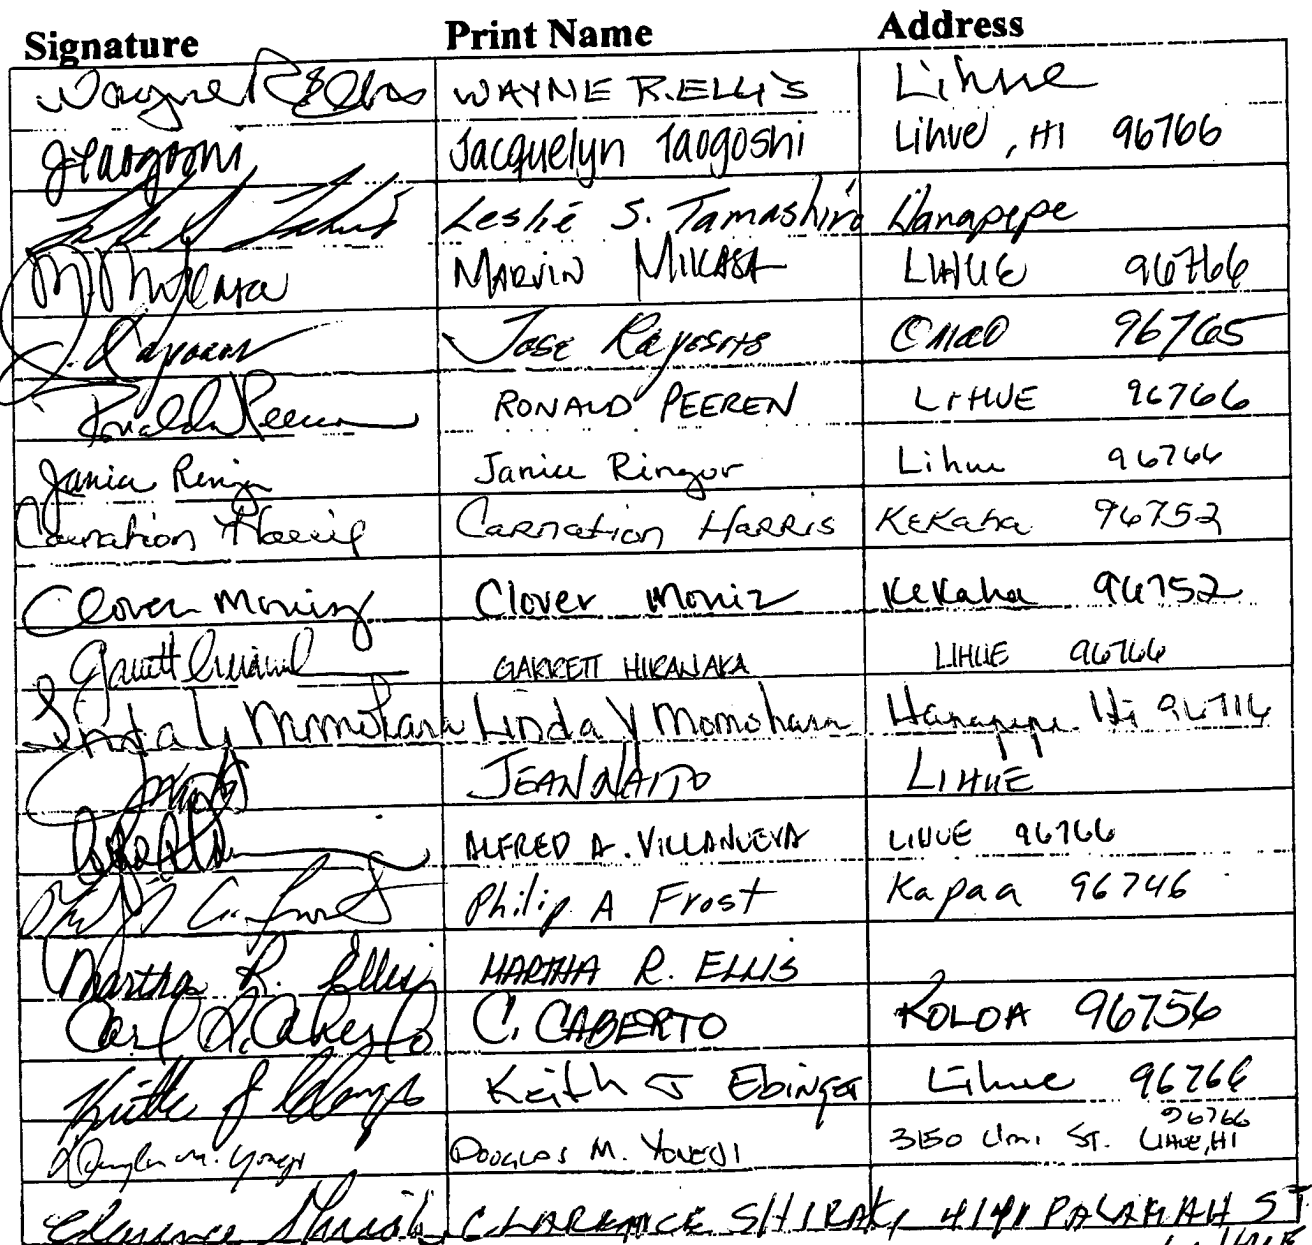 Signature Print Name Address
Wayne R Ellis WAYNE R. ELLIS Lihue
J Taogoshi Jacquelyn Taogoshi Lihue, HI 96766
Leslie S. Tamashiro Hanapepe
M. Mikasa MARVIN MIKASA LIHUE 96766
J. Rayosos Jose Rayosos OMAO 96765
Ronald Peeren RONALD PEEREN LIHUE 96766
Janice Ringor Janice Ringor Lihue 96766
Carnation Harris CARNATION HARRIS KEKAHA 96752
Clover Moniz Clover Moniz Kekaha 96752
Garrett GARRETT HIRANAKA LIHUE 96766
Linda Y Momohara Linda Y Momohara Hanapepe Hi 96716
JEAN NAITO LIHUE
ALFRED A. VILLANUEVA LIHUE 96766
Philip A Frost Kapaa 96746
Martha R. Ellis MARTHA R. ELLIS
Carl A. Caberto C. CABERTO KOLOA 96756
Keith J Ebinger Lihue 96766
Douglas M. Yoneji DOUGLAS M. YONEJI 3150 ST. LIHUE, HI 96766
Clarence Shiraki CLARENCE SHIRAKI 4141 PALAMAH ST.
LIHUE